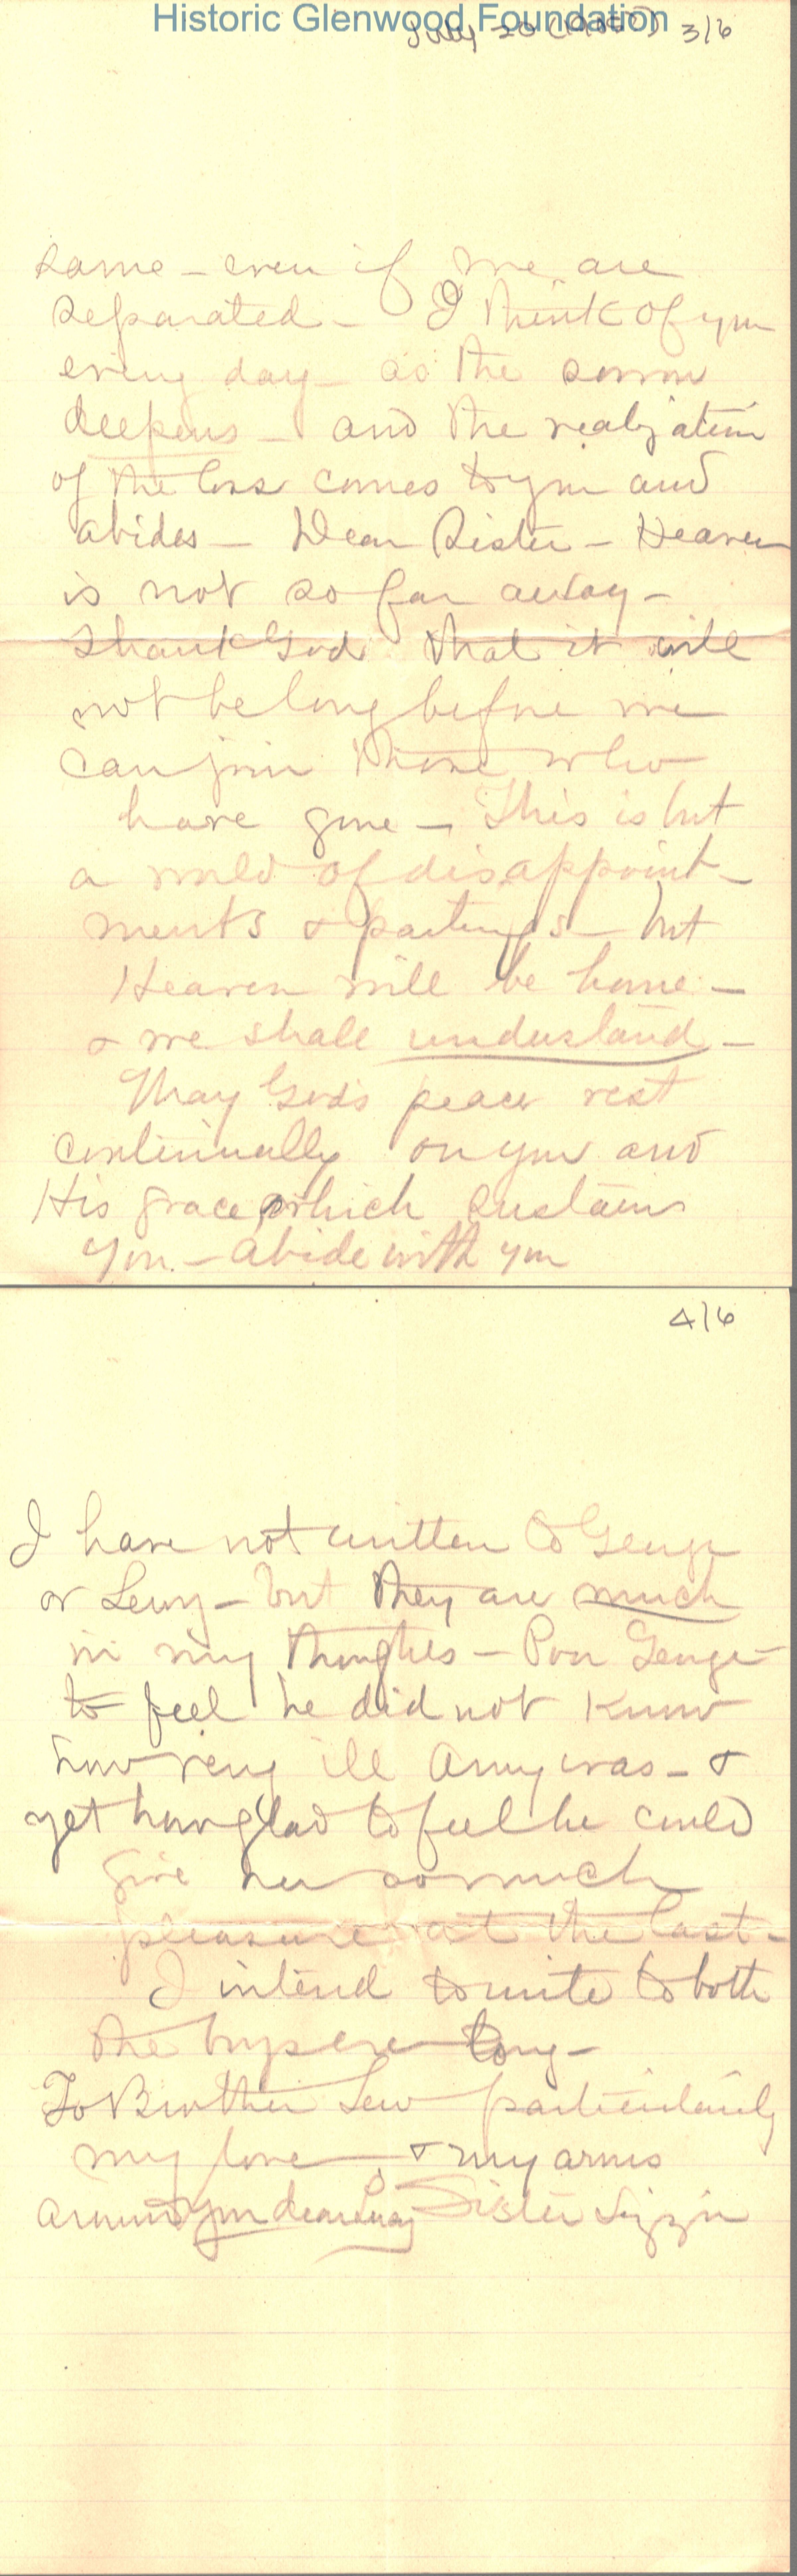 Historic Glenwood Foundation
July 20 3/6
same – even if we are
separated – I think of you
every day – as the sorrow
deepens – and the realization
of the loss comes to you and
abides – Dear Sister – Heaven
is not so far away –
Thank God that it will
not be long before we
can join those who
have gone – This is but
a world of disappoint-
ments & partings – but
Heaven will be home –
& we shall understand –
May God's peace rest
continually on you and
His grace which sustains
you – abide with you
4/6
I have not written to George
or Leroy – but they are much
in my thoughts – Poor George
to feel he did not know
how very ill Amy was – &
yet how glad to feel he could
give her so much
pleasure at the last –
I intend to write to both
the boys ere long –
To Brother Lew particularly
my love – & my arms
around you dear Sister Lizzie